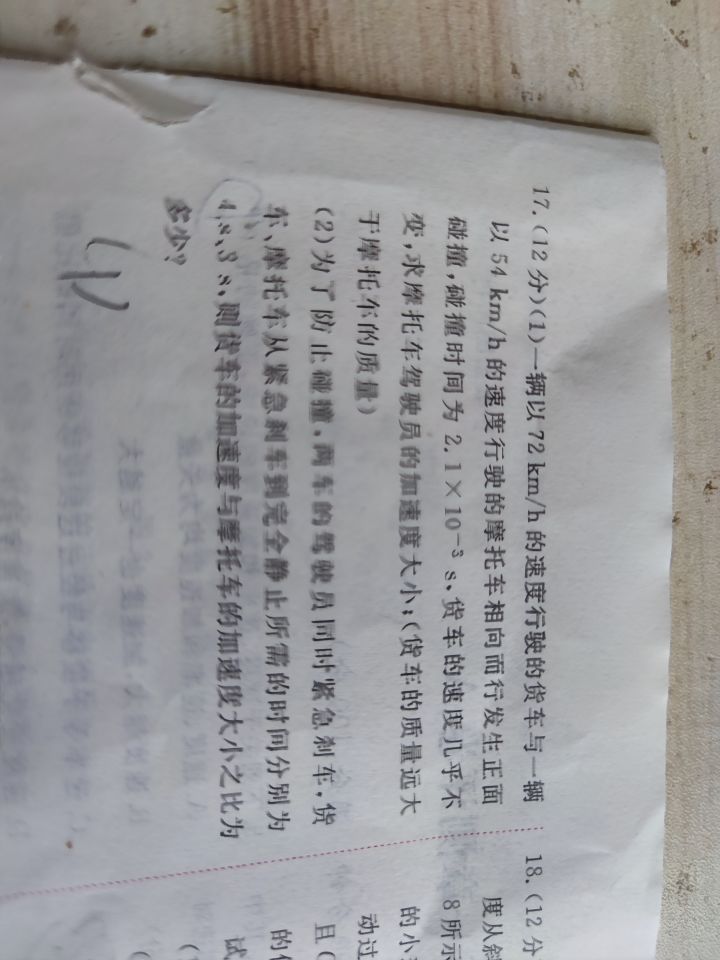 17.(12分)(1)一辆以72 km/h的速度行驶的货车与一辆
以54 km/h的速度行驶的摩托车相向而行发生正面
碰撞,碰撞时间为2.1×10⁻³ s,货车的速度几乎不
变,求摩托车驾驶员的加速度大小;(货车的质量远大
于摩托车的质量)
(2)为了防止碰撞,两车的驾驶员同时紧急刹车,货
车、摩托车从紧急刹车到完全静止所需的时间分别为
4 s、3 s,则货车的加速度与摩托车的加速度大小之比为
多少?
18.(12分
度从斜
8所示
的小
动过
且(
的
试
(
(